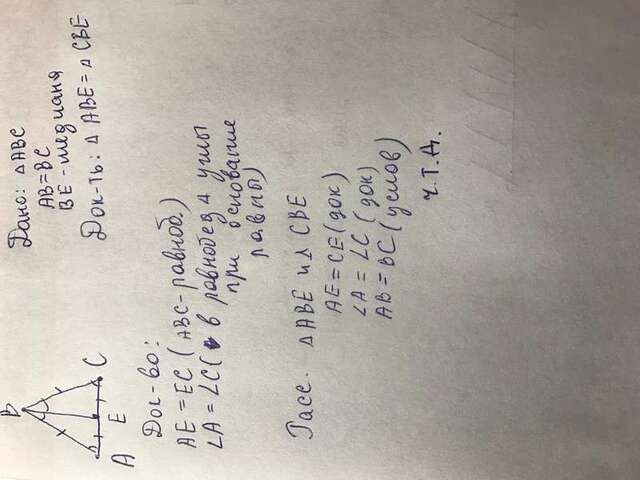 B
A
E
C
Дано: △ABC
AB=BC
BE-медиана
Док-ть: △ ABE = △ CBE
Док-во:
AE = EC (ABC-равноб.)
∠A = ∠C ( в равнобед △ углы
при основание
равны)
Расс. △ABE и △ CBE
AE = CE (док)
∠A = ∠C (док)
AB = BC (услов)
ч.т.д.